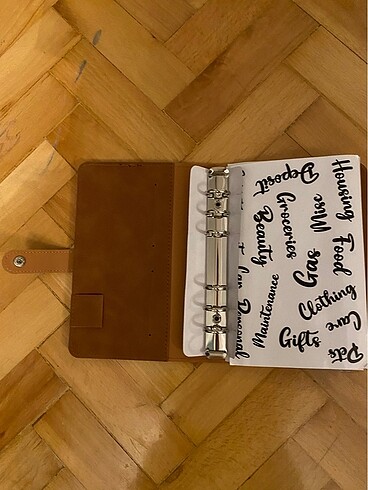 Housing
Food
Care
Pets
Misc
Clothing
Deposit
Groceries
Gas
Gifts
Beauty
Maintenance
Car
Personal